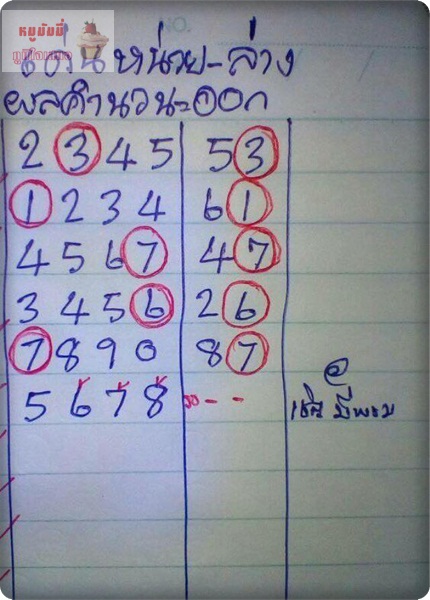 NO.
หมูมันนี่
เด่นหน่วย-ล่าง
ผลคำนวน=ออก
2 3 4 5 5 3
1 2 3 4 6 1
4 5 6 7 4 7
3 4 5 6 2 6
7 8 9 0 8 7
5 6 7 8 รอ - -